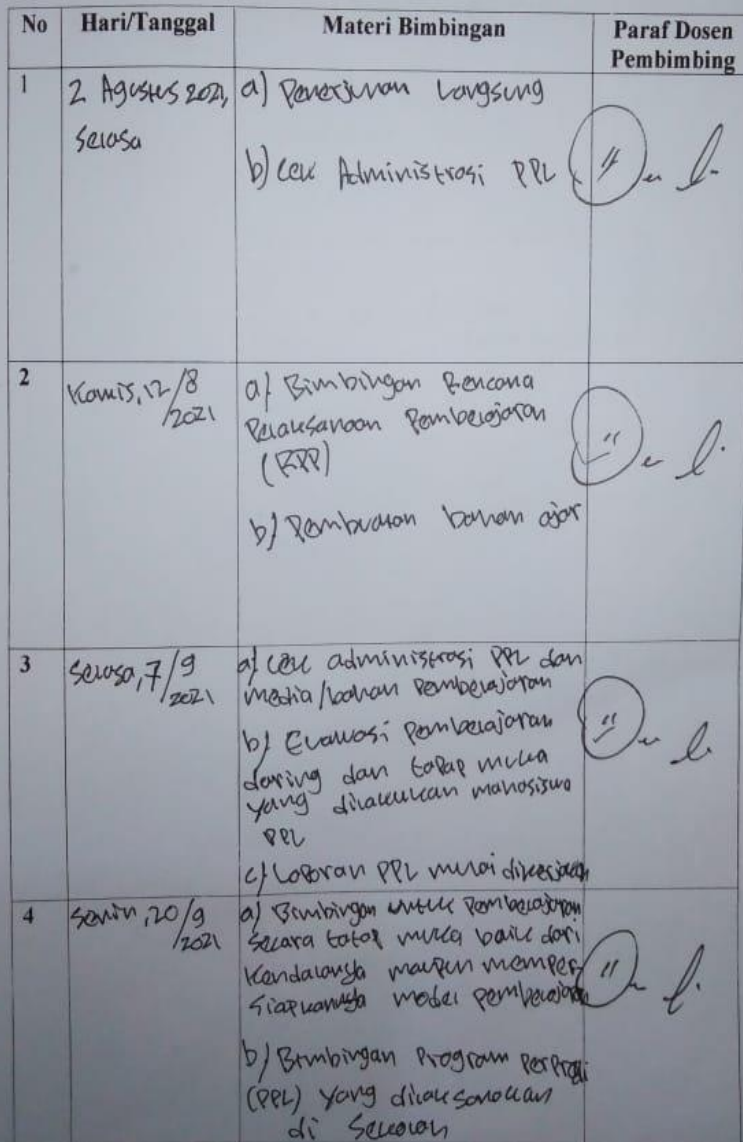 No Hari/Tanggal Materi Bimbingan Paraf Dosen
Pembimbing
1
2 Agustus 2021,
Selasa
a) Penerjunan Langsung
b) Cek Administrasi PPL
2
Kamis, 12/8
/2021
a) Bimbingan Rencana
Pelaksanaan Pembelajaran
(RPP)
b) Pembuatan bahan ajar
3
Selasa, 7/9
/2021
a) Cek administrasi PPL dan
media/bahan Pembelajaran
b) Evaluasi Pembelajaran
daring dan tatap muka
yang dilakukan mahasiswa
PPL
c) Laporan PPL mulai dikerjakan
4
Senin, 20/9
/2021
a) Bimbingan untuk Pembelajaran
secara tatap muka baik dari
Kendalanya maupun memper
siapkannya model pembelajaran
b) Bimbingan Program PerProdi
(PPL) yang dilaksanakan
di Sekolah